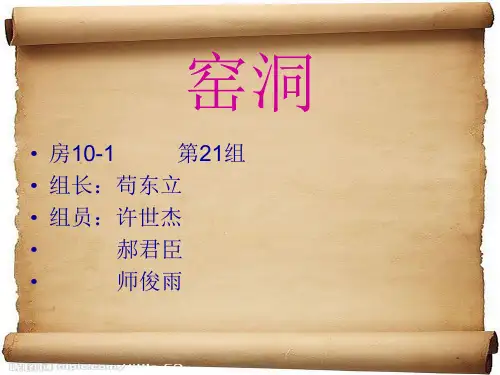 窑洞
• 房10-1 第21组
• 组长：苟东立
• 组员：许世杰
• 郝君臣
• 师俊雨